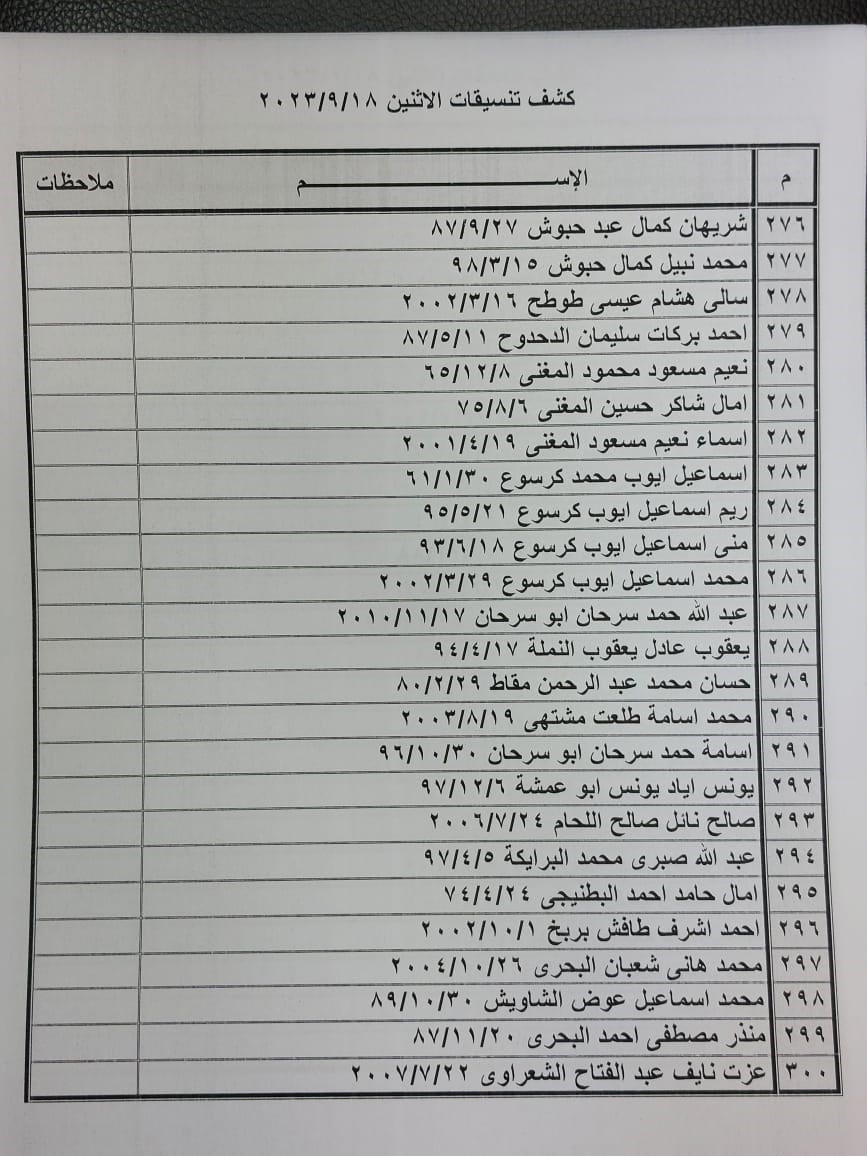 كشف تنسيقات الاثنين ٢٠٢٣/٩/١٨
م الإســـــــــم ملاحظات
٢٧٦ شريهان كمال عبد حبوش ٨٧/٩/٢٧
٢٧٧ محمد نبيل كمال حبوش ٩٨/٣/١٥
٢٧٨ سالى هشام عيسى طوطح ٢٠٠٢/٣/١٦
٢٧٩ احمد بركات سليمان الدحدوح ٨٧/٥/١١
٢٨٠ نعيم مسعود محمود المغنى ٦٥/١٢/٨
٢٨١ امال شاكر حسين المغنى ٧٥/٨/٦
٢٨٢ اسماء نعيم مسعود المغنى ٢٠٠١/٤/١٩
٢٨٣ اسماعيل ايوب محمد كرسوع ٦١/١/٣٠
٢٨٤ ريم اسماعيل ايوب كرسوع ٩٥/٥/٢١
٢٨٥ منى اسماعيل ايوب كرسوع ٩٣/٦/١٨
٢٨٦ محمد اسماعيل ايوب كرسوع ٢٠٠٢/٣/٢٩
٢٨٧ عبد الله حمد سرحان ابو سرحان ٢٠١٠/١١/١٧
٢٨٨ يعقوب عادل يعقوب النملة ٩٤/٤/١٧
٢٨٩ حسان محمد عبد الرحمن مقاط ٨٠/٢/٢٩
٢٩٠ محمد اسامة طلعت مشتهى ٢٠٠٣/٨/١٩
٢٩١ اسامة حمد سرحان ابو سرحان ٩٦/١٠/٣٠
٢٩٢ يونس اياد يونس ابو عمشة ٩٧/١٢/٦
٢٩٣ صالح نائل صالح اللحام ٢٠٠٦/٧/٢٤
٢٩٤ عبد الله صبرى محمد البرايكة ٩٧/٤/٥
٢٩٥ امال حامد احمد البطنيجى ٧٤/٤/٢٤
٢٩٦ احمد اشرف طافش بربخ ٢٠٠٢/١٠/١
٢٩٧ محمد هانى شعبان البحرى ٢٠٠٤/١٠/٢٦
٢٩٨ محمد اسماعيل عوض الشاويش ٨٩/١٠/٣٠
٢٩٩ منذر مصطفى احمد البحرى ٨٧/١١/٢٠
٣٠٠ عزت نايف عبد الفتاح الشعراوى ٢٠٠٧/٧/٢٢